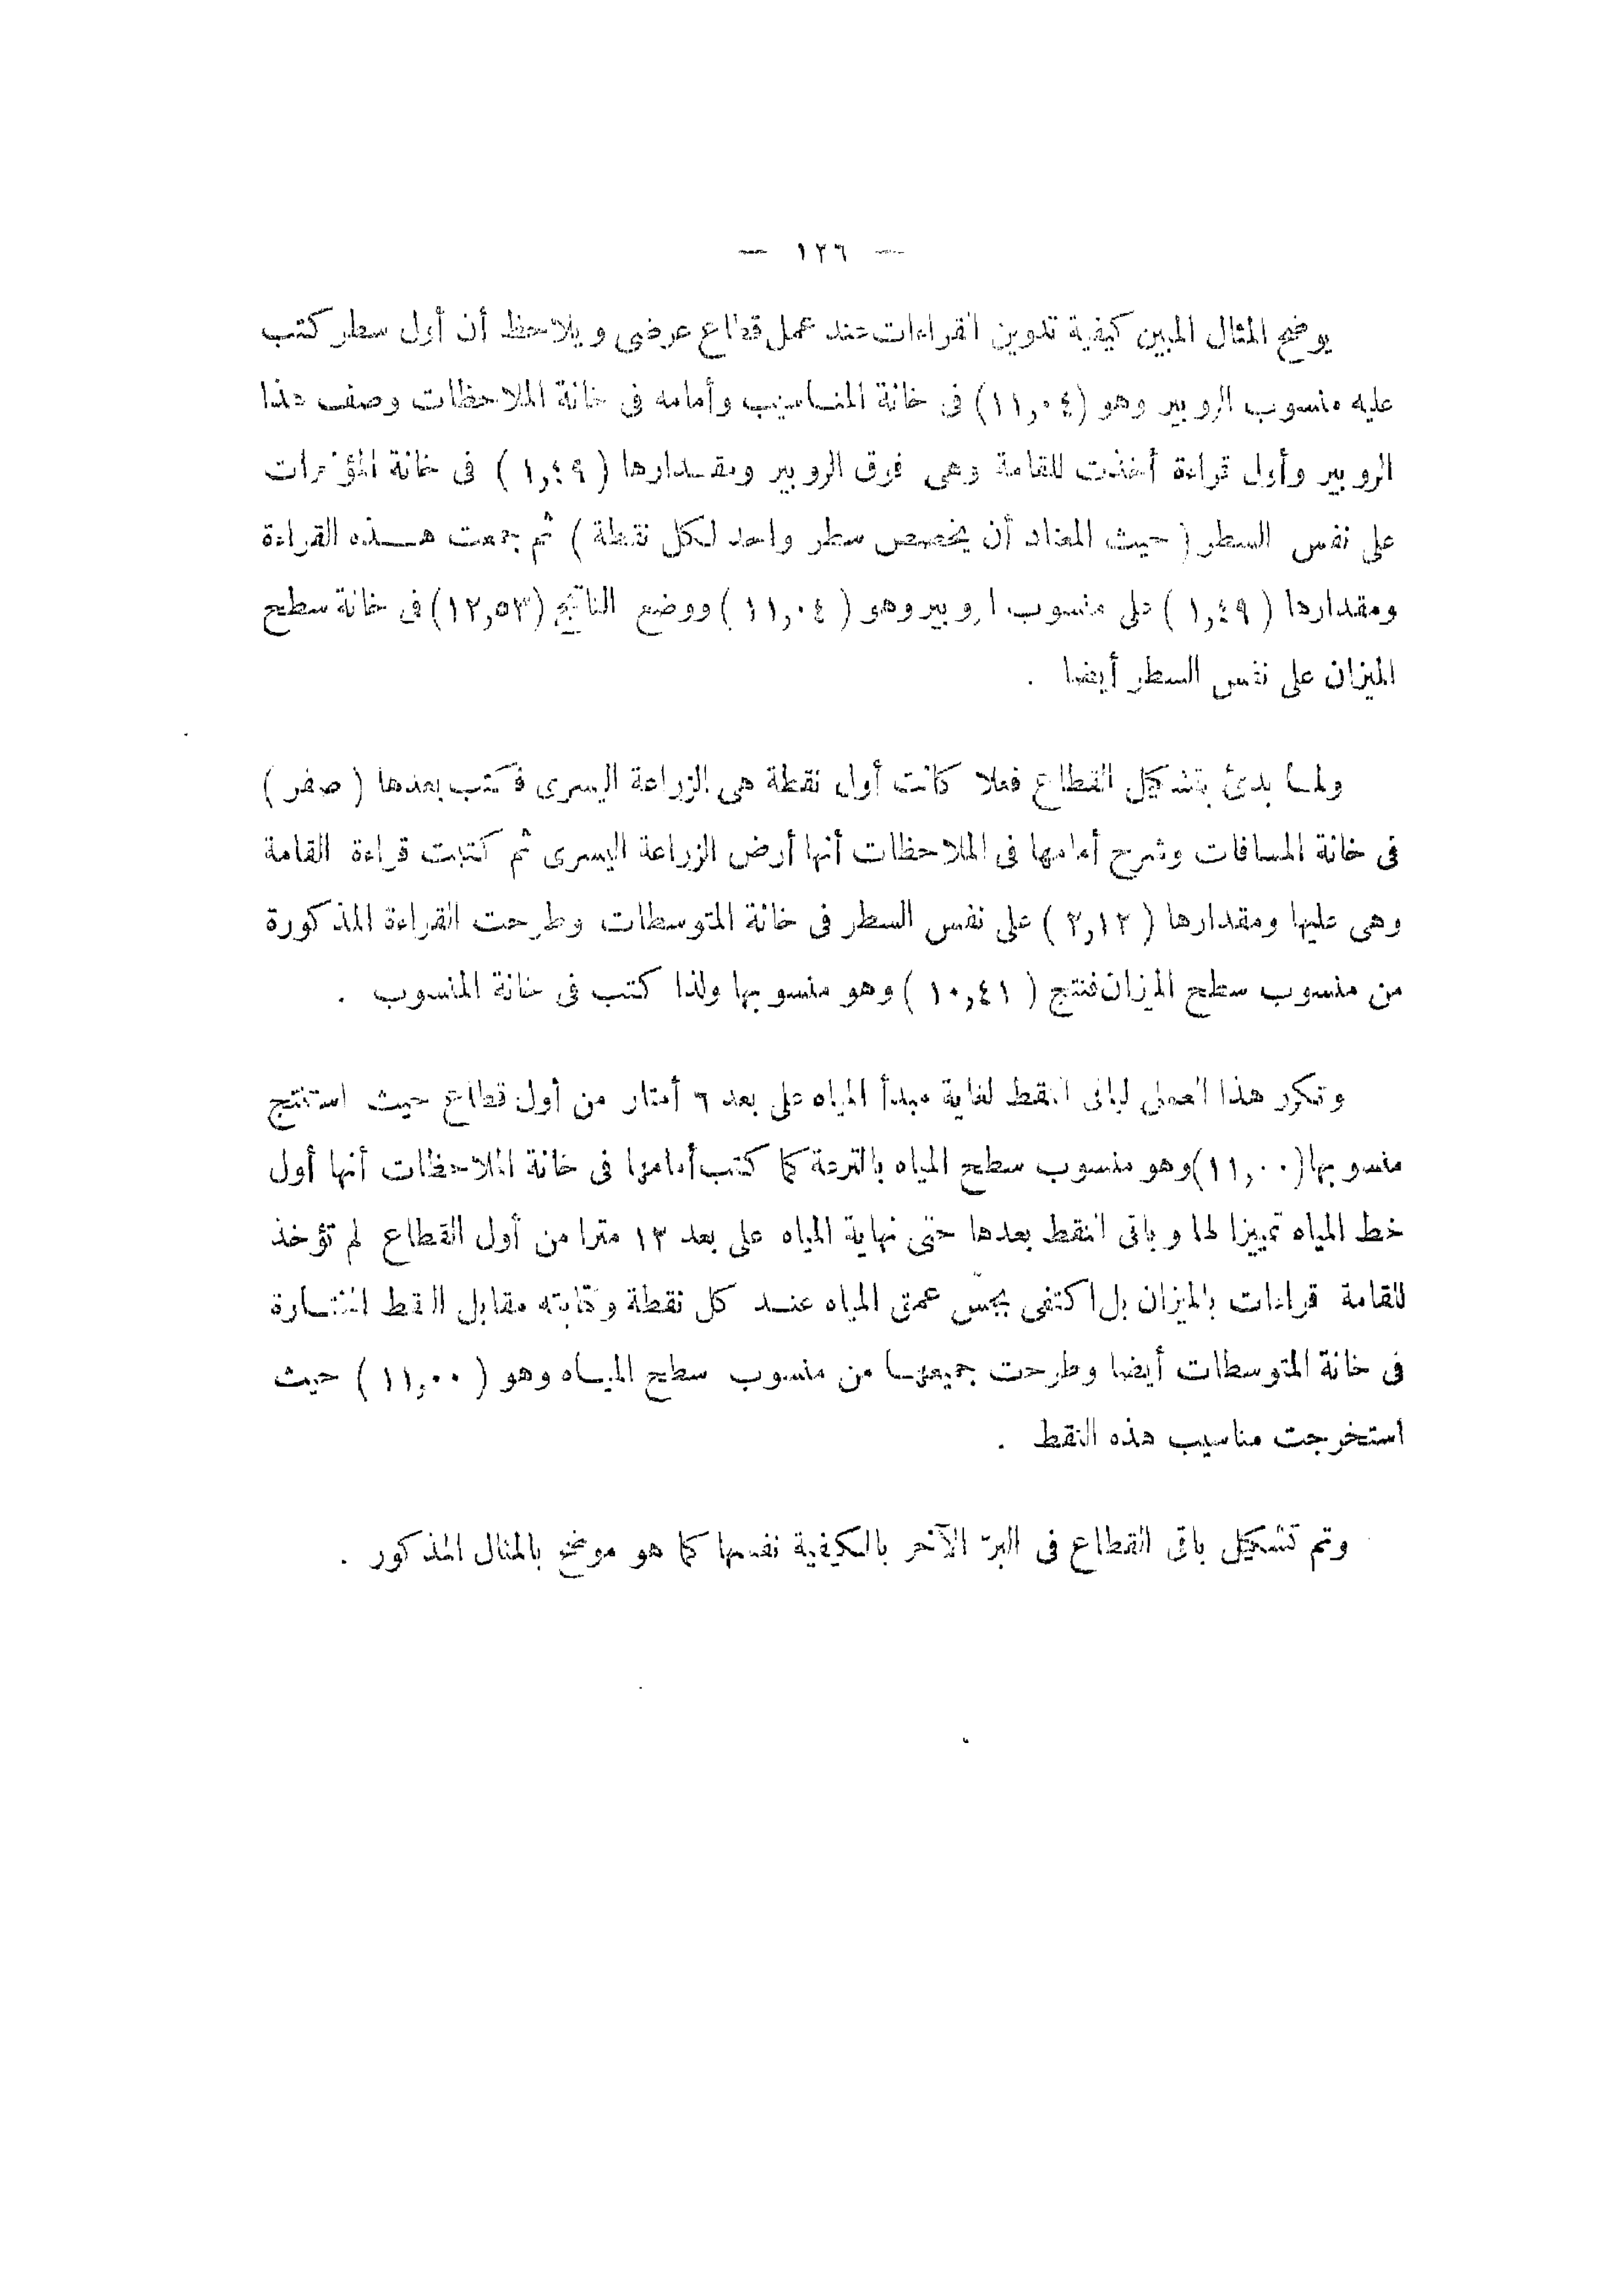 — ١٢٦ —
يوضح المثال المبين كيفية تدوين القراءات عند عمل قطاع عرضى ويلاحظ أن أول سطر كتب
عليه منسوب الروبير وهو (١١,٠٤) فى خانة المناسيب وأمامه فى خانة الملاحظات وصف هذا
الروبير وأول قراءة أخذت للقامة وهى فوق الروبير ومقدارها (١,٤٩) فى خانة المؤخرات
على نفس السطر (حيث المعتاد أن يخصص سطر واحد لكل نقطة) ثم جمعت هذه القراءة
ومقدارها (١,٤٩) على منسوب الروبير وهو (١١,٠٤) ووضع الناتج (١٢,٥٣) فى خانة سطح
الميزان على نفس السطر أيضا .
ولما بدئ بتشكيل القطاع فعلا كانت أول نقطة هى الزراعة اليسرى فكتب بعدها (صفر)
فى خانة المسافات وشرح أمامها فى الملاحظات أنها أرض الزراعة اليسرى ثم كتبت قراءة القامة
وهى عليها ومقدارها (٢,١٢) على نفس السطر فى خانة المتوسطات وطرحت القراءة المذكورة
من منسوب سطح الميزان فنتج (١٠,٤١) وهو منسوبها ولذا كتب فى خانة المنسوب .
وتكرر هذا العمل لباقى النقط لغاية مبدأ المياه على بعد ٦ أمتار من أول قطاع حيث استنتج
منسوبها (١١,٠٠) وهو منسوب سطح المياه بالترعة كما كتب أمامها فى خانة الملاحظات أنها أول
خط المياه تمييزا لها وباقى النقط بعدها حتى نهاية المياه على بعد ١٣ مترا من أول القطاع لم تؤخذ
للقامة قراءات بالميزان بل اكتفى بجسّ عمق المياه عند كل نقطة وكتابته مقابل النقط المختارة
فى خانة المتوسطات أيضا وطرحت جميعها من منسوب سطح المياه وهو (١١,٠٠) حيث
استخرجت مناسيب هذه النقط .
وتم تشكيل باقى القطاع فى البرّ الآخر بالكيفية نفسها كما هو موضح بالمثال المذكور .